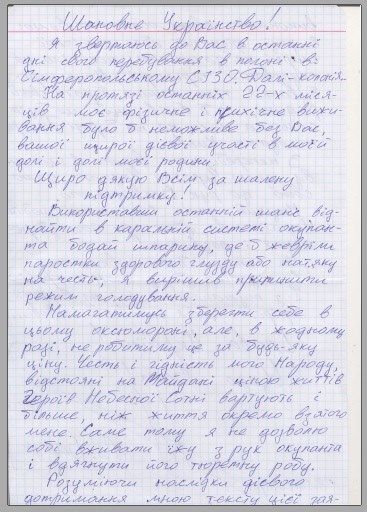 Шановне Українство!
Я звертаюсь до Вас в останні
дні свого перебування в полоні в:
Сімферопольському СІЗО. Далі - колонія.
На протязі останніх 22-х міся-
ців моє фізичне і психічне вижи-
вання було б неможливе без Вас,
вашої щирої дієвої участі в моїй
долі і долі моєї родини
Щиро дякую Всім за шалену
підтримку!
Використавши останній шанс від-
найти в каральній системі окупан-
та бодай шпарину, де б жевріли
паростки здорового глузду або натяку
на честь, я вирішив припинити
режим голодування.
Намагатимусь зберегти себе в
цьому оксюмороні, але, в жодному
разі, не робитиму це за будь-яку
ціну. Честь і гідність мого Народу,
відстояні на Майдані ціною життів
Героїв Небесної Сотні вартують і
більше, ніж життя окремо взятого
мене. Саме тому я не дозволю
собі вживати їжу з рук окупанта
і вдягнути його тюремну робу.
Розуміючи наслідки дієвого
дотримання мною тексту цієї зая-